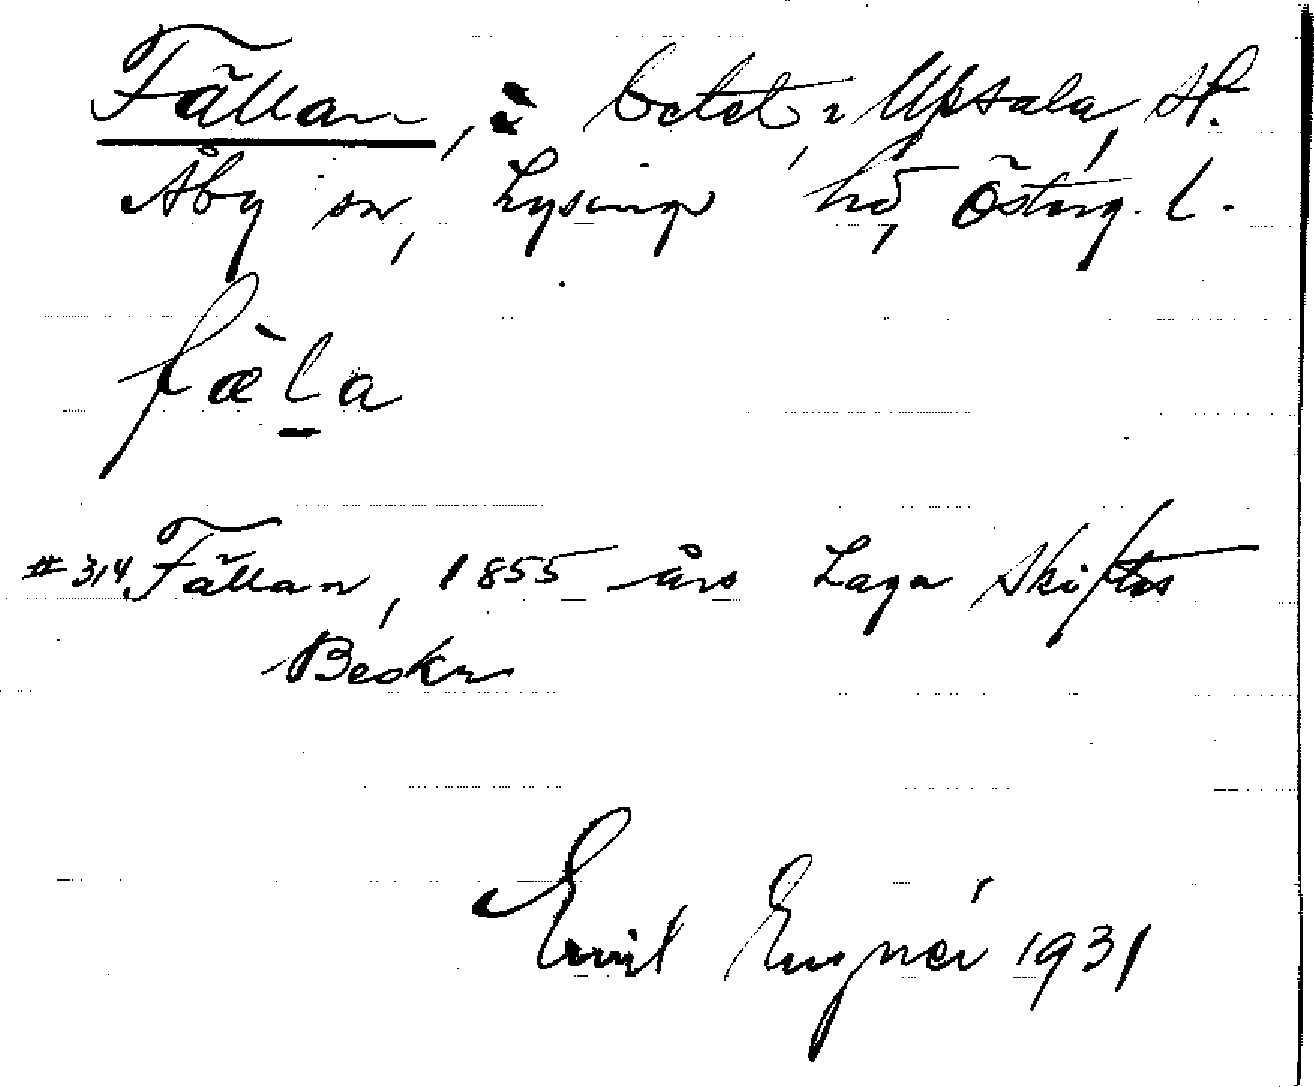 Fällan, i betet, Uppsala, St.
Åby sn, Lysings hd, Östergl.
fæ̀l̲a
#314 Fällan, 1855 års Laga Skiftes
Beskr
Emil Engnér 1931